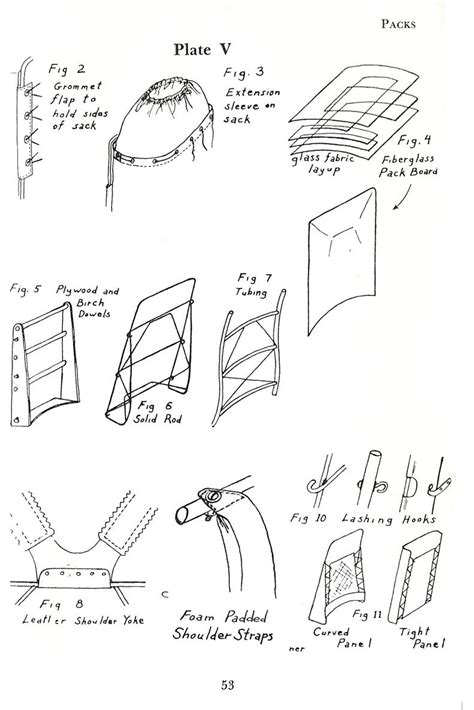 PACKS
Plate V
Fig 2
Grommet
flap to
hold sides
of sack
Fig. 3
Extension
sleeve on
sack
glass fabric
layup
Fig. 4
Fiberglass
Pack Board
Fig. 5 Plywood and
Birch
Dowels
Fig 6
Solid Rod
Fig 7
Tubing
Fig 8
Leather Shoulder Yoke
C
Foam Padded
Shoulder Straps
Fig 10 Lashing Hooks
Fig 11
Curved
Panel
ner
Tight
Panel
53